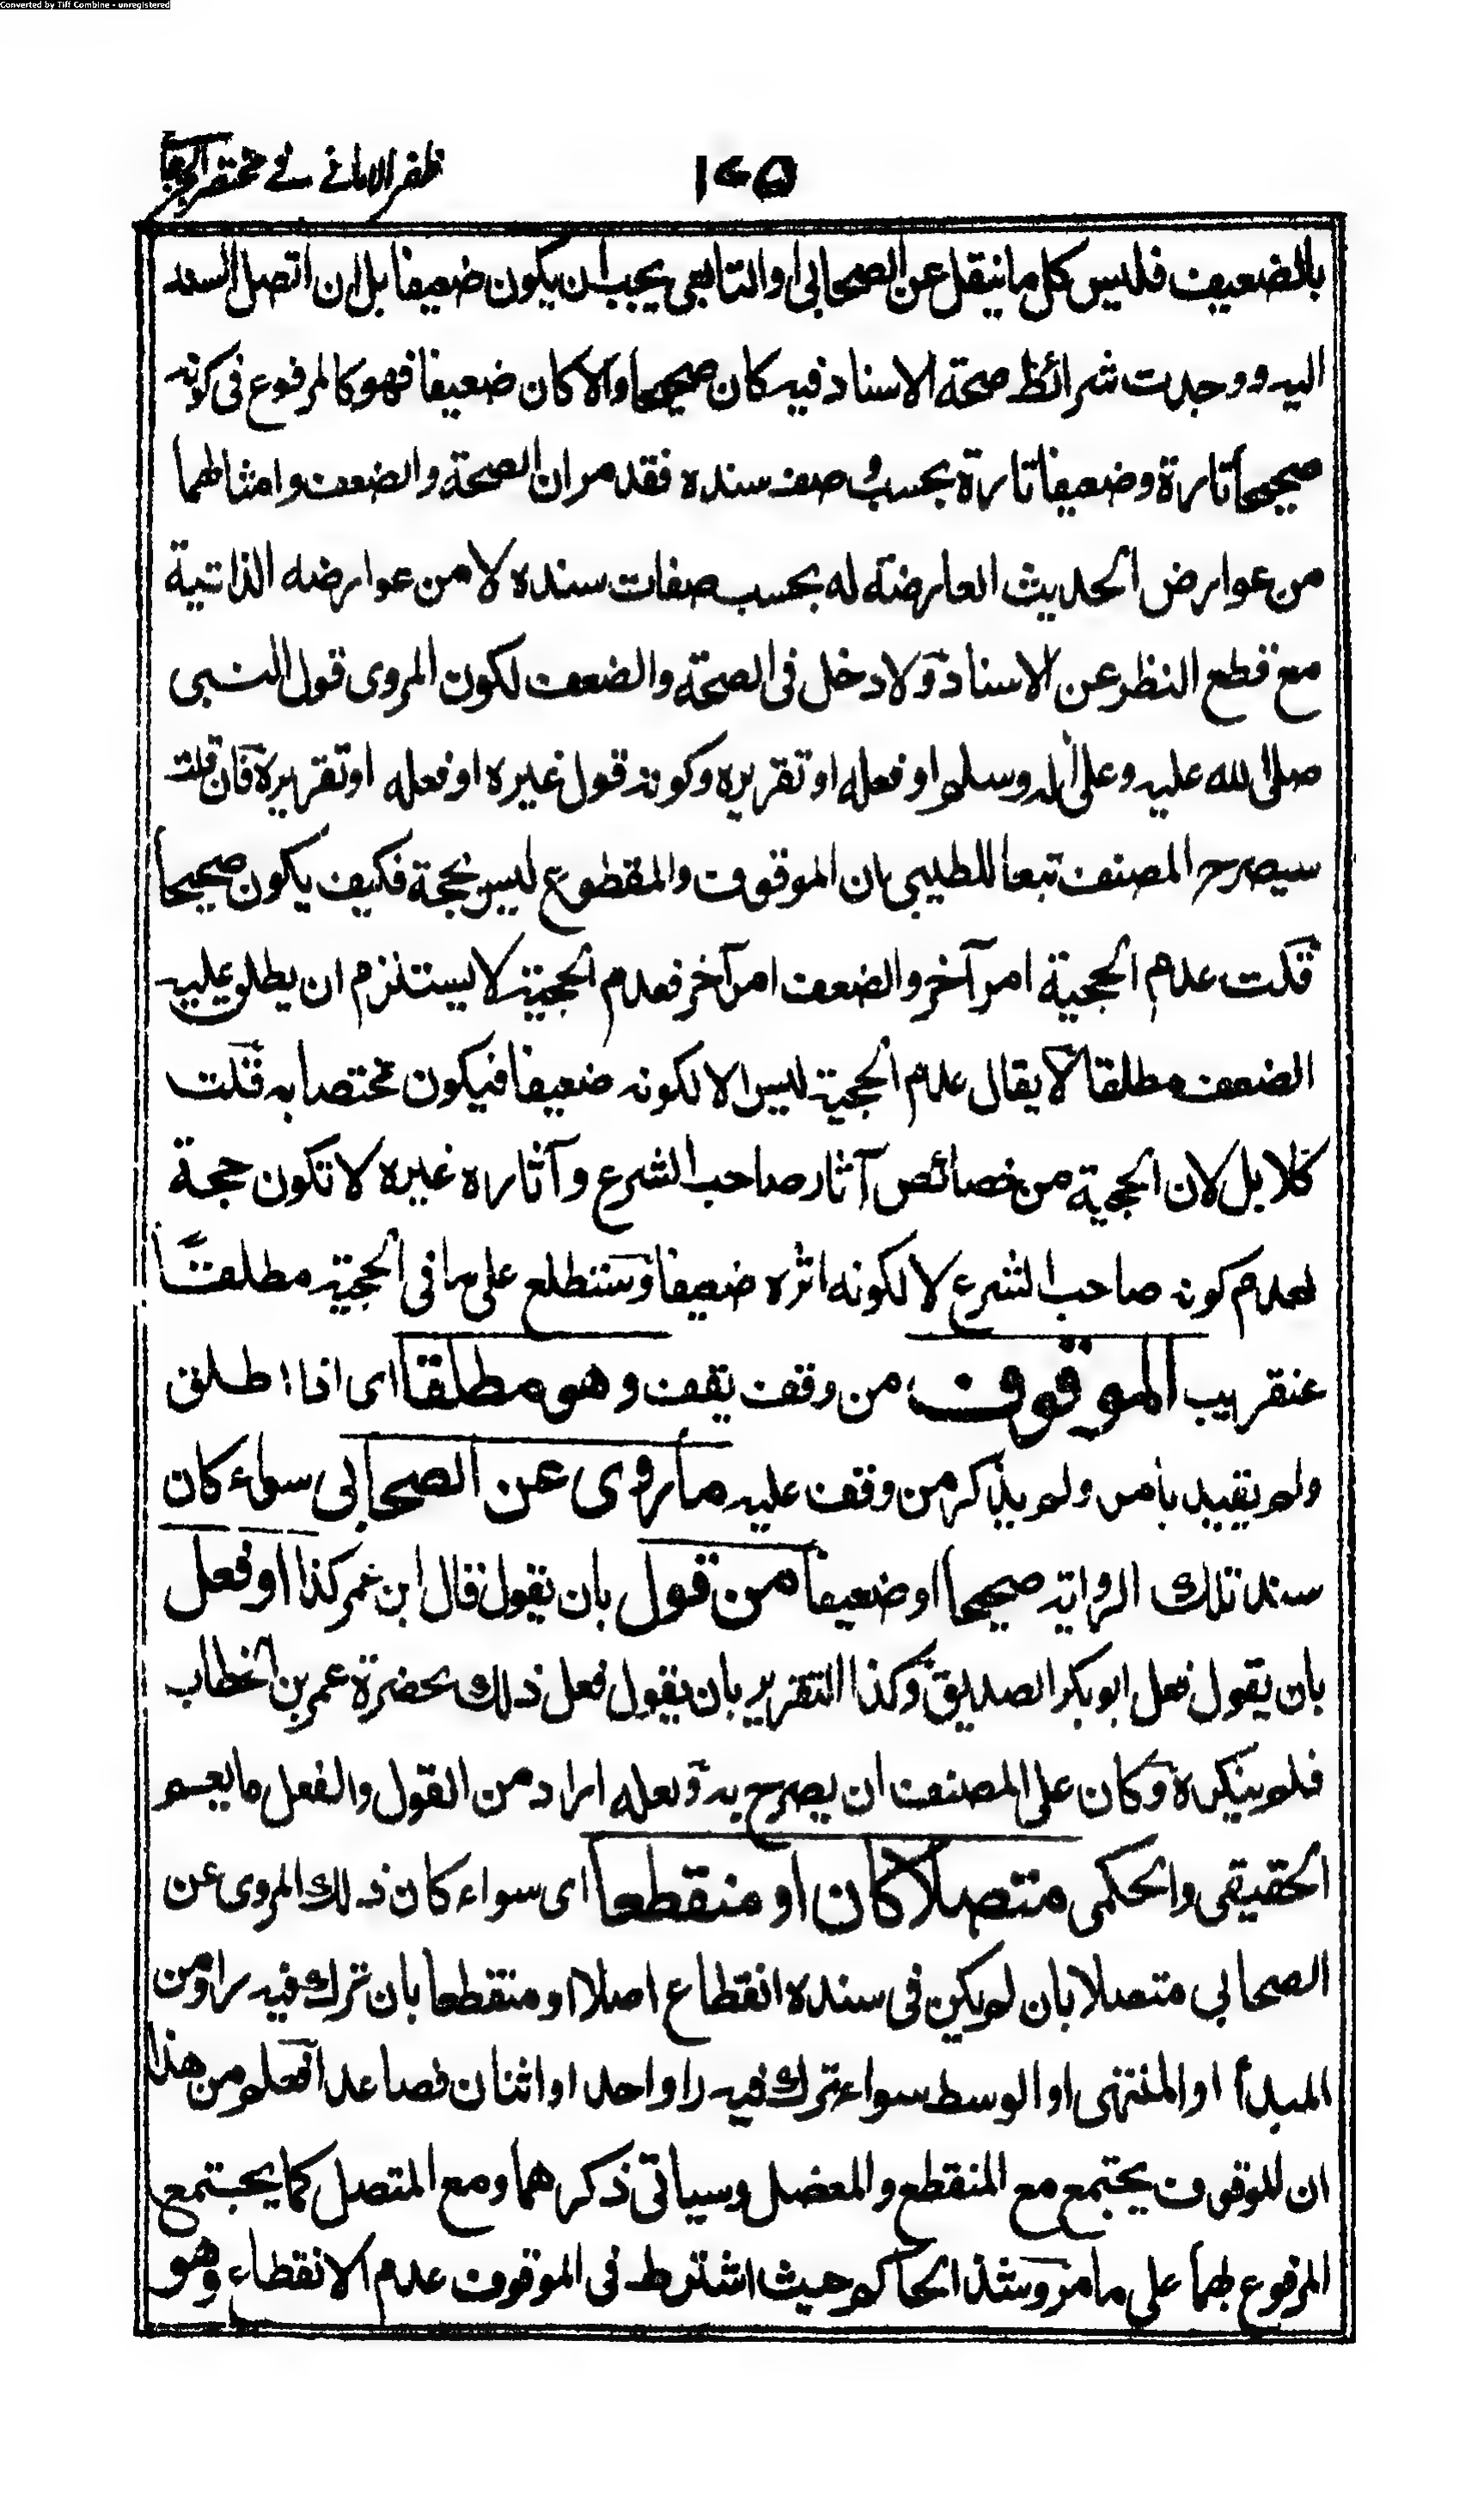 Converted by Tiff Combine - unregistered
ظفر الامانی فی مختصر الجرجانی
١٢٥
بالضعیف فلیس کل ما ینقل عن الصحابی او التابعی یجب ان یکون ضعیفا بل ان اتصل السند
الیه ووجدت شرائط صحة الاسناد فیه کان صحیحا والا کان ضعیفا فهو کالمرفوع فی کونه
صحیحا تارة وضعیفا تارة بحسب وصف سنده فقد مر ان الصحة والضعف وامثالهما
من عوارض الحدیث العارضة له بحسب صفات سنده لا من عوارضه الذاتیة
مع قطع النظر عن الاسناد ولا دخل فی الصحة والضعف لکون المروی قول النبی
صلی الله علیه وعلی آله وسلم او فعله او تقریره وکونه قول غیره او فعله او تقریره فان قلت
سیصرح المصنف تبعا للطیبی بان الموقوف والمقطوع لیس بحجة فکیف یکون صحیحا
قلت عدم الحجیة امر آخر والضعف امر آخر فعدم الحجیة لا یستلزم ان یطلق علیه
الضعف مطلقا لا یقال عدم الحجیة لیس الا لکونه ضعیفا فیکون مختصا به قلت
کلا بل لان الحجیة من خصائص آثار صاحب الشرع وآثاره غیره لا تکون حجة
لعدم کونه صاحب الشرع لا لکونه اثره ضعیفا وستطلع علی ما فی الحجیة مطلقا
عنقریب الموقوف من وقف یقف وهو مطلقا ای اذا اطلق
ولم یقید بامر ولم یذکر من وقف علیه ما روی عن الصحابی سواء کان
سند تلک الروایة صحیحا او ضعیفا من قول بان یقول قال ابن عمر کذا او فعل
بان یقول فعل ابو بکر الصدیق وکذا التقریر بان یقول فعل ذلک بحضرة عمر بن الخطاب
فلم ینکره وکان علی المصنف ان یصرح به ولعله اراد من القول والفعل ما یعم
الحقیقی والحکمی متصلا کان او منقطعا ای سواء کان ذلک المروی عن
الصحابی متصلا بان لم یکن فی سنده انقطاع اصلا او منقطعا بان ترک فیه راو من
المبدأ او المنتهی او الوسط سواء ترک فیه راو واحد او اثنان فصاعدا فعلم من هذا
ان الموقوف یجتمع مع المنقطع والمعضل وسیاتی ذکرهما ومع المتصل کما یجتمع
المرفوع بهما علی ما مر وشذ الحاکم حیث اشترط فی الموقوف عدم الانقطاع وهو